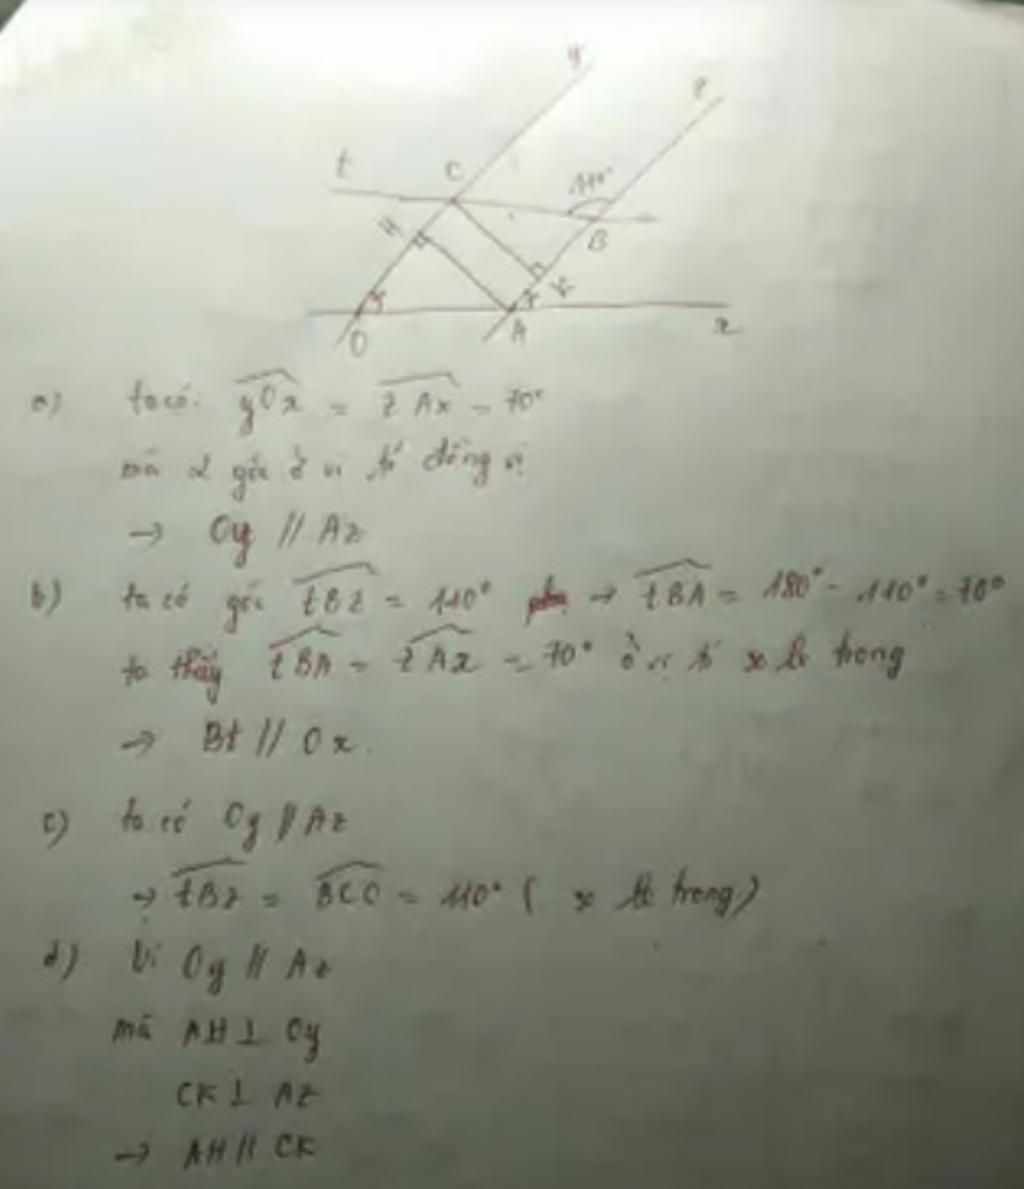 y
z
t
C
110°
H
B
K
O
A
x
a) ta có: yOx = zAx = 70°
mà 2 góc ở vị trí đồng vị
→ Oy // Az
b) ta có góc tBz = 110° → tBA = 180° - 110° = 70°
ta thấy tBA = zAx = 70° ở vị trí so le trong
→ Bt // Ox.
c) ta có Oy // Az
→ tBz = BCO = 110° ( so le trong)
d) Vì Oy // Az
mà AH ⊥ Oy
CK ⊥ Az
→ AH // CK